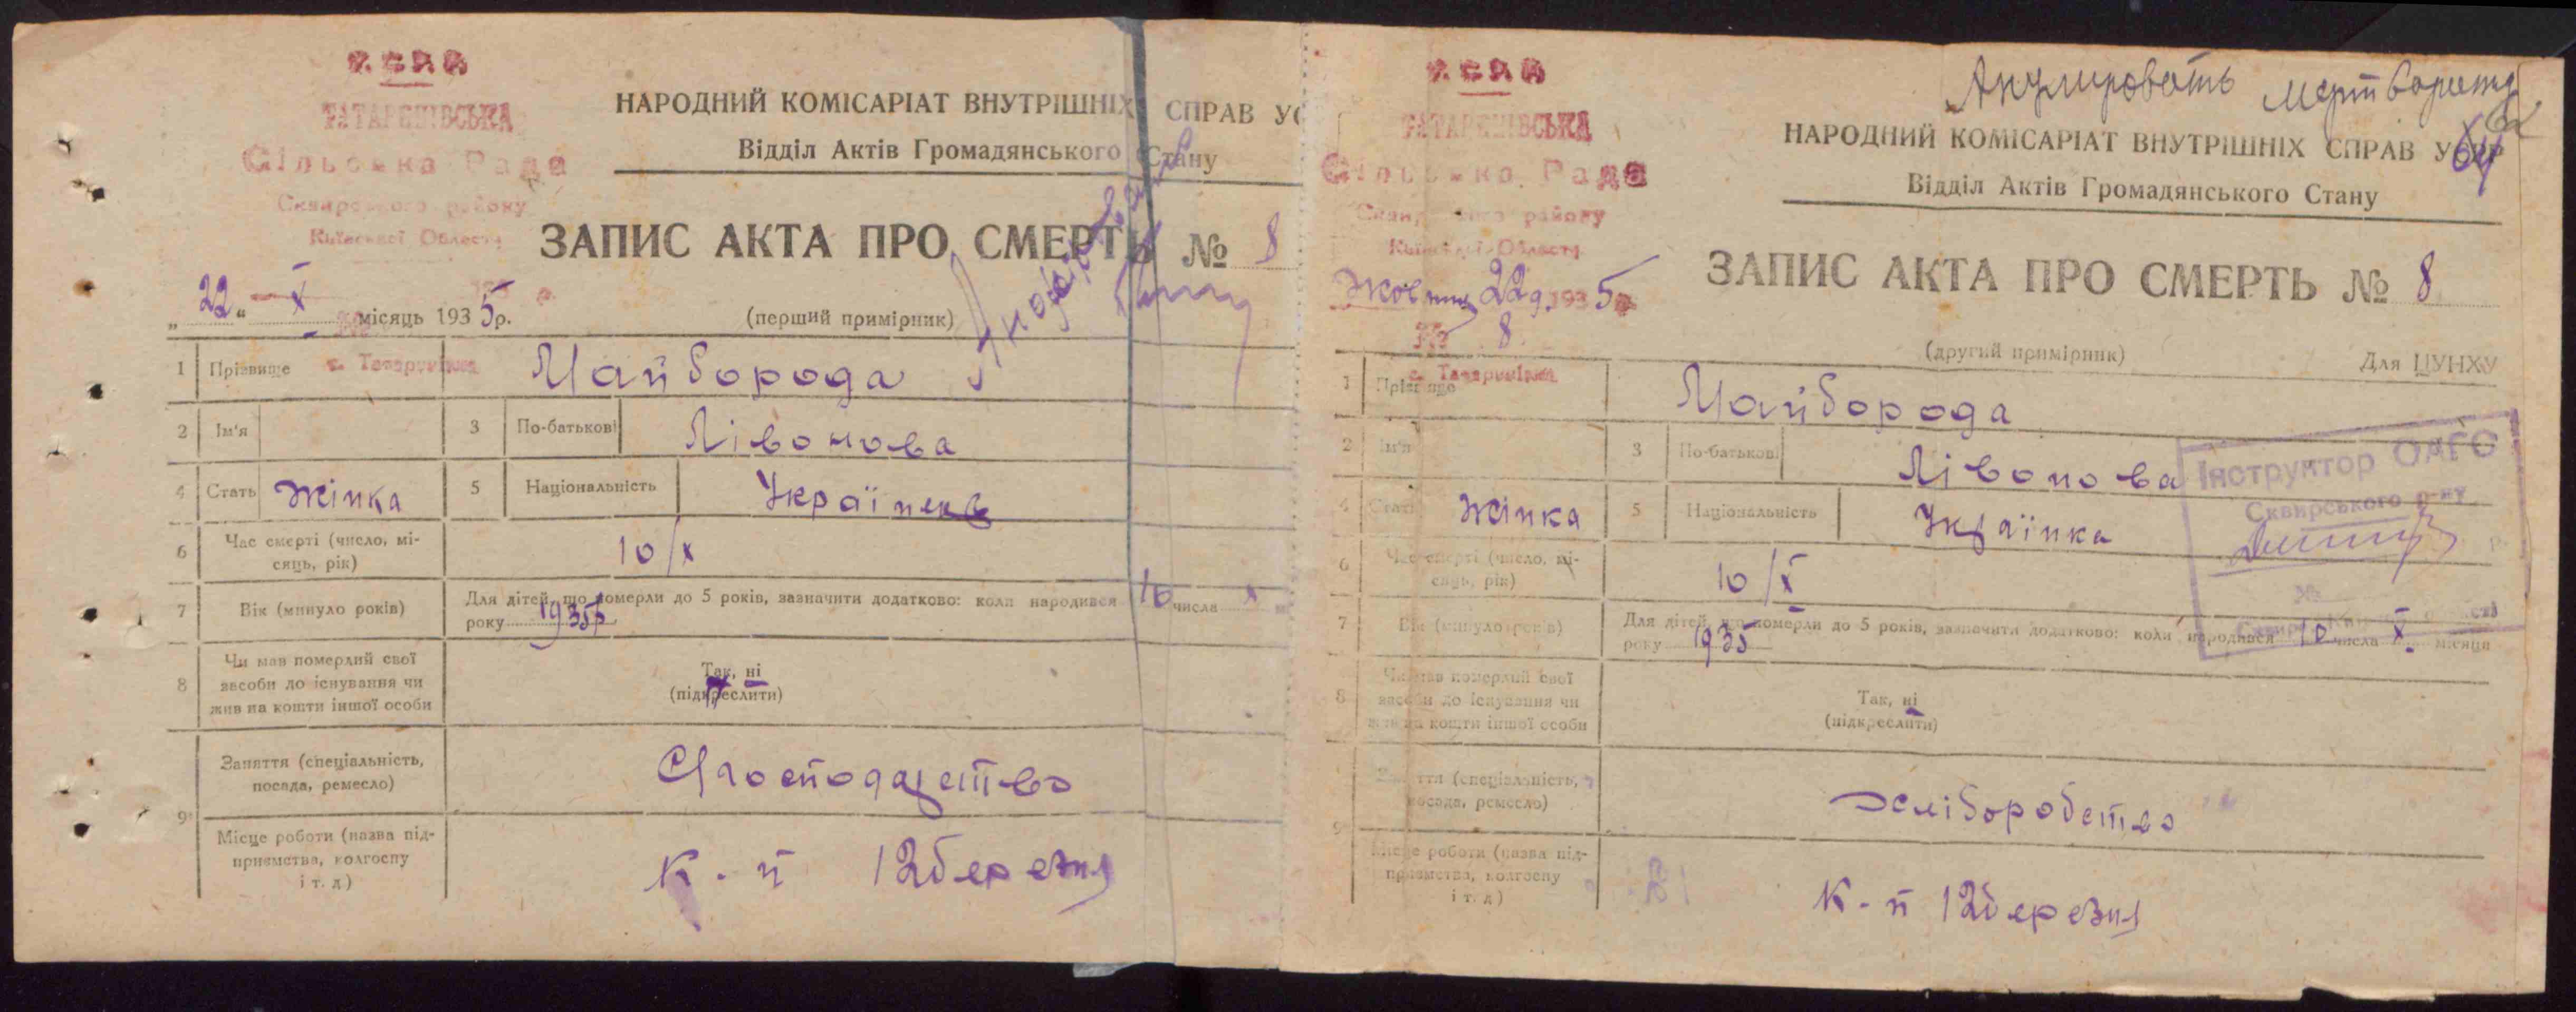 У.С.Р.Р.
ТАТАРИНІВСЬКА
Сільська Рада
Сквирського району
Київської Области
НАРОДНИЙ КОМІСАРІАТ ВНУТРІШНІХ СПРАВ УС
Відділ Актів Громадянського Стану
ЗАПИС АКТА ПРО СМЕРТЬ № 8
„22“ X місяць 1935р.
(перший примірник)
1 Прізвище Майборода
с. Татаринівка
2 Ім'я 3 По-батькові Лівонова
4 Стать Жінка 5 Національність Українка
6 Час смерті (число, місяць, рік) 10/X
7 Вік (минуло років) Для дітей, що померли до 5 років, зазначити додатково: коли народився 10 числа X м
року 1935р
8 Чи мав померлий свої
засоби до існування чи
жив на кошти іншої особи
Так, ні
(підкреслити)
9 Заняття (спеціальність,
посада, ремесло)
Місце роботи (назва під-
приємства, колгоспу
і т. д)
К-п 12 березня
У.С.Р.Р.
ТАТАРИНІВСЬКА
Сільська Рада
Сквирського району
Київської Области
Жовтня 22д. 1935р
№ 8
с. Татаринівка
Анулировать мертворожд
НАРОДНИЙ КОМІСАРІАТ ВНУТРІШНІХ СПРАВ УСРР
Відділ Актів Громадянського Стану
ЗАПИС АКТА ПРО СМЕРТЬ № 8
(другий примірник) Для ЦУНХУ
1 Прізвище Майборода
2 Ім'я 3 По-батькові Лівонова
4 Стать Жінка 5 Національність Українка
Інструктор ОАГС
Сквирського р-ну
№
6 Час смерті (число, мі-
сяць, рік) 10/X
7 Вік (минуло років) Для дітей, що померли до 5 років, зазначити додатково: коли народився 10 числа X місяця
року 1935
8 Чи мав померлий свої
засоби до існування чи
жив на кошти іншої особи
Так, ні
(підкреслити)
9 Заняття (спеціальність,
посада, ремесло) Хліборобство
Місце роботи (назва під-
приємства, колгоспу
і т. д)
К-п 12 березня